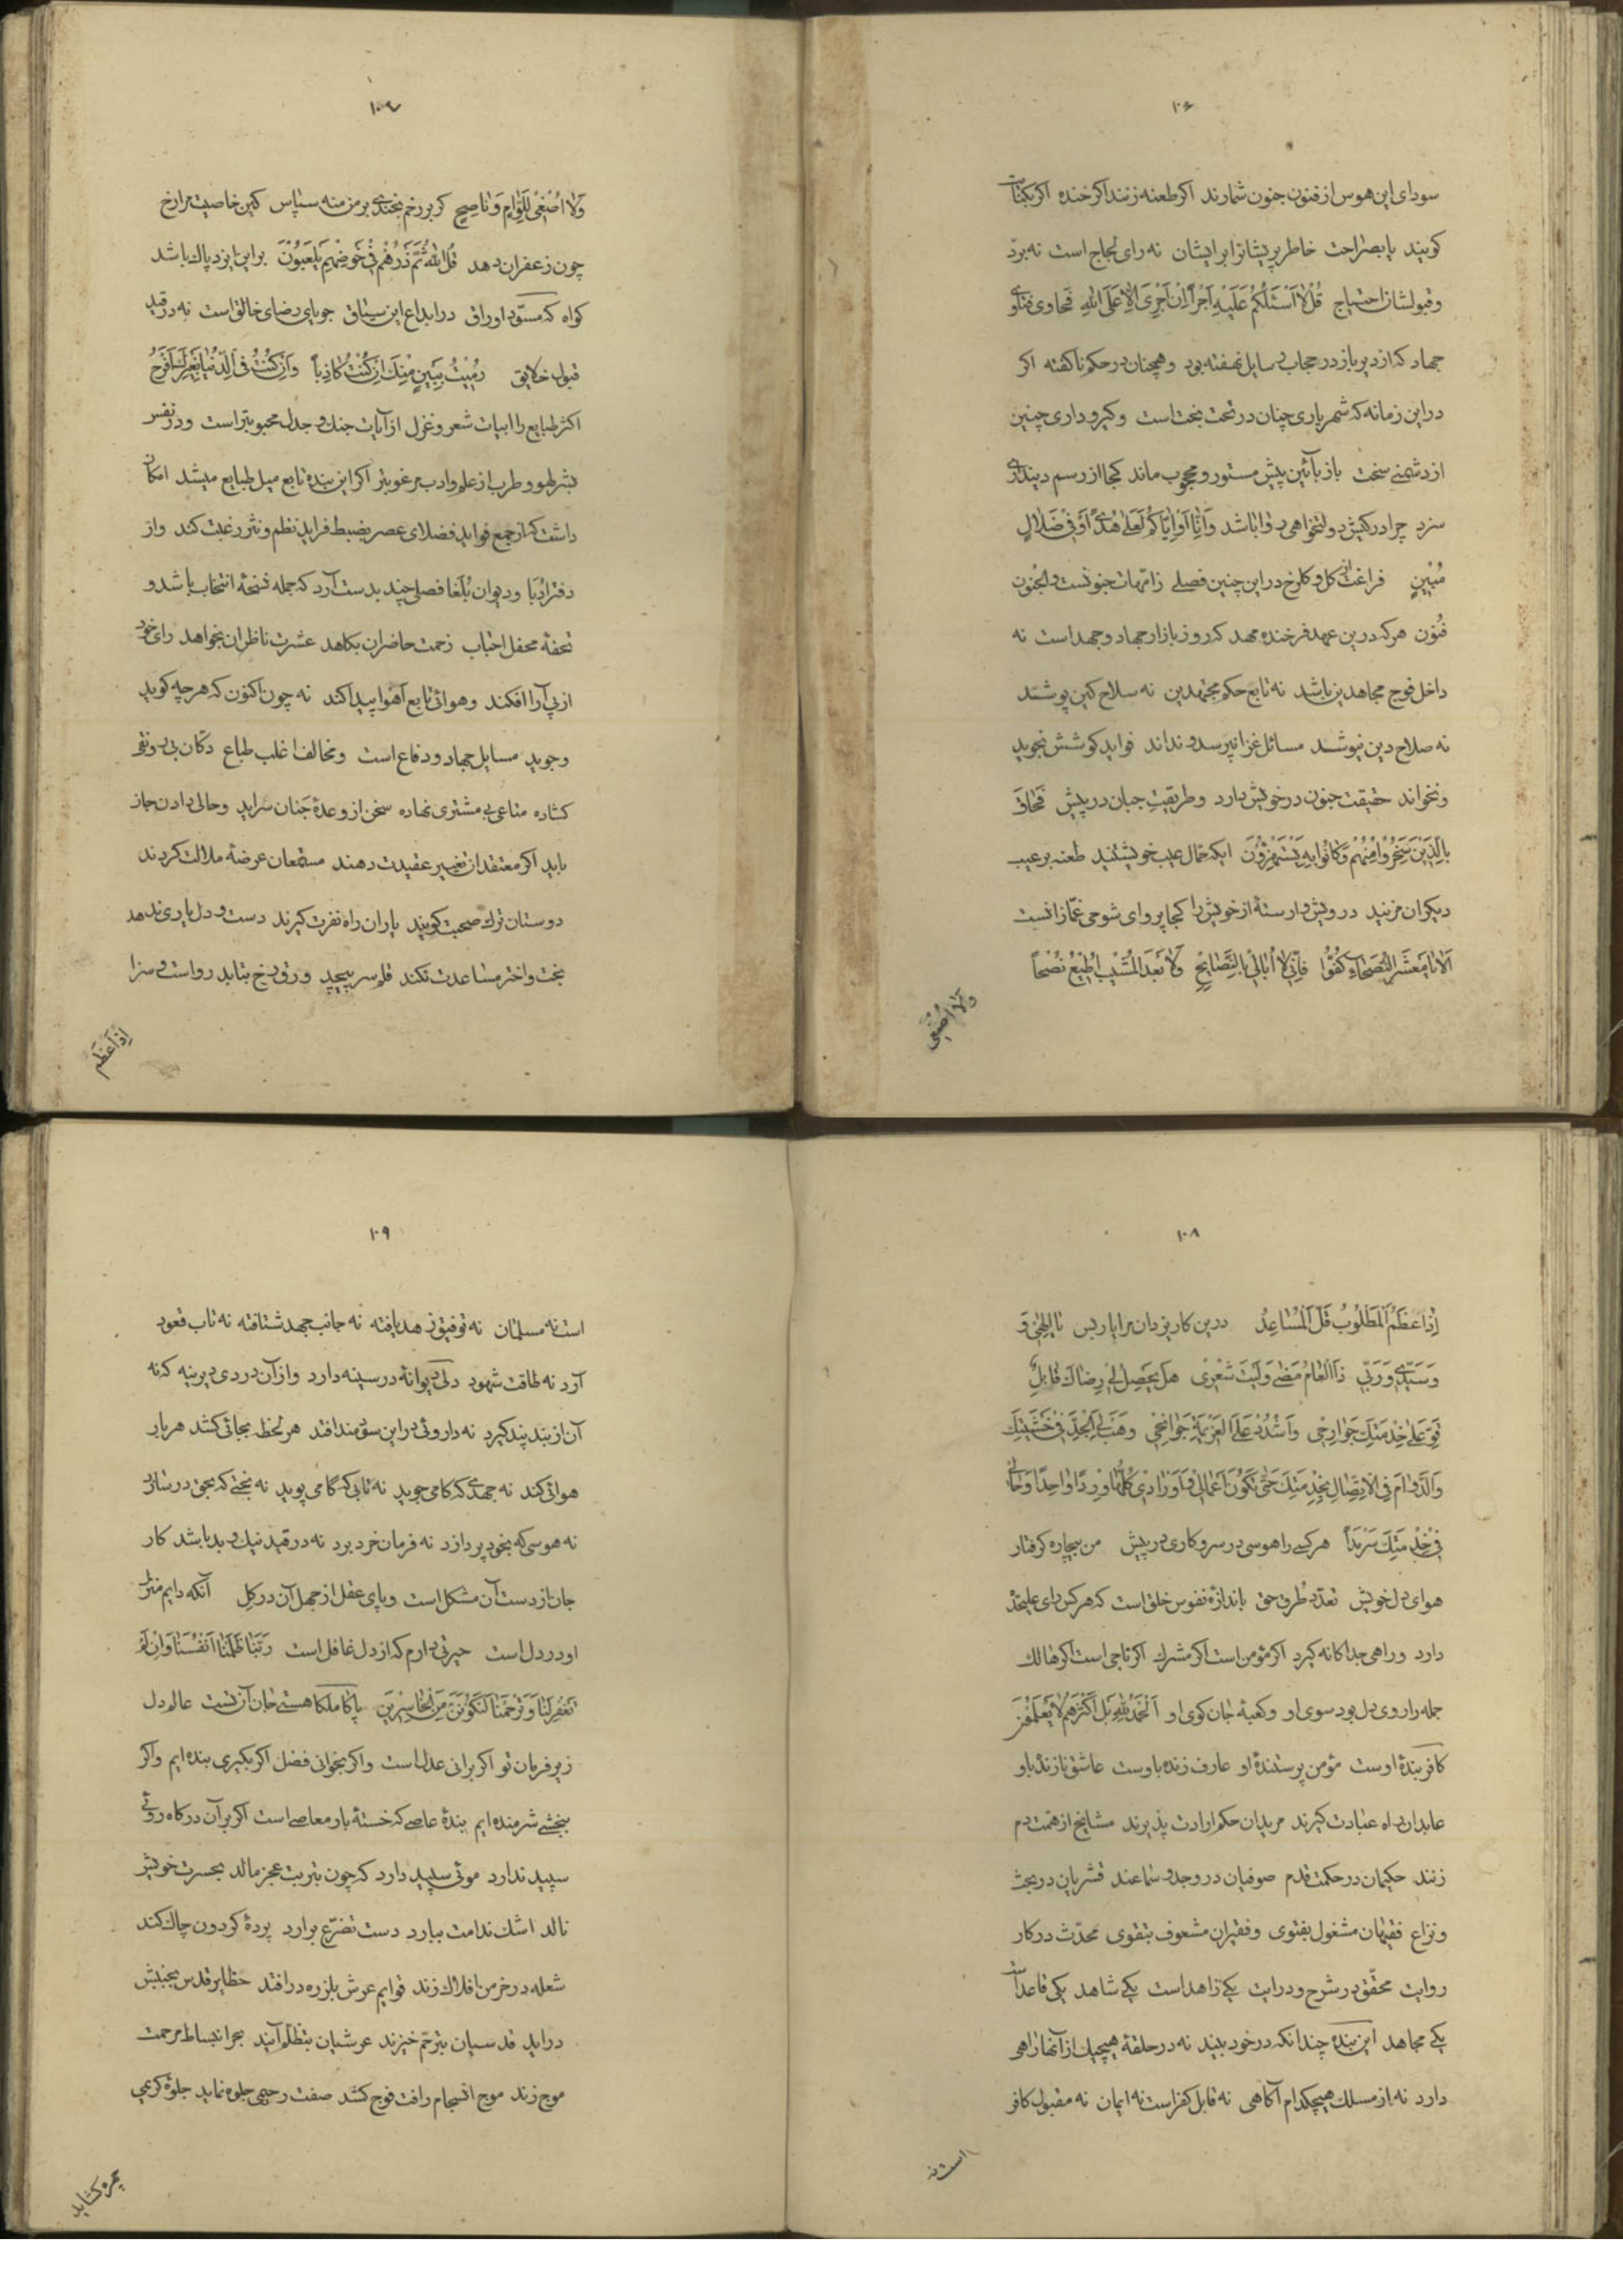 ۱۰۶
سودای این هوس از فنون جنون شمارند اکر طعنه زنند اکر خنده اکر بکنایت
کویند یا بصراحت خاطر پریشانرا بر ایشان نه رای لجاج است نه برد
و قبولشان احتیاج قُلْ لا اَسْئَلُکُمْ عَلَیْهِ اَجْراً اِنْ اَجْرِیَ اِلّا عَلَی اللّهِ فحاوی فتاوی
جهاد که از دیر باز در حجاب رسایل نهفته بود و همچنان در حکم ناکفته اکر
در این زمانه که شهریاری چنان در تخت بخت است و کیر و داری چنین
از دشمنی سخت باز بآئین پیش مستور و محجوب ماند کجا از رسم دینداری
سزد چرا در کیش دولتخواهی روا باشد وَاِنّا اَوْ اِیّاکُمْ لَعَلی هُدیً اَوْ فی ضَلالٍ
مُبینٍ فراغت از کل و کلرخ در این چنین فصلی ز امّهات جنونست و الجُنون
فُنون هر که درین عهد فرخنده مهد که روز بازار جهاد و جهد است نه
داخل فوج مجاهدین باشد نه تابع حکم مجتهدین نه سلاح کین پوشد
نه صلاح دین نیوشد مسائل غزا نپرسد و نداند فواید کوشش نجوید
و نخواند حقیقت جنون در خویش دارد و طریقت جبان در پیش فَحاقَ
بِالَّذینَ سَخِرُوا مِنْهُمْ ما کانُوا بِهِ یَسْتَهْزِؤُنَ ایکه حمال عیب خویشتنید طعنه بر عیب
دیکران مزنید درویش وارستهٔ از خویش را کجا پروای شوحی غمّازانست
اَلا یا مَعْشَرَ النُّصَحاءِ کُفُّوا فَاِنّی لا اُبالی بِالنَّصایِحِ وَلا بَعْدَ الْمُشَیبِ اُطیعُ نُصْحاً
وَلا اُصْغی
۱۰۷
وَلا اُصْغی لِلَوّامٍ وَ ناصِحٍ کر بر رخم بخندی بر من منه سپاس کین خاصیت مرا رخ
چون زعفران دهد قُلِ اللّهُ ثُمَّ ذَرْهُمْ فی خَوْضِهِمْ یَلْعَبُونَ براین ایزد پاک باشد
کواه که مسوّد اوراق در ابداع این سیاق جویای رضای خالق است نه در قید
قبول خلایق رُمیتُ بِبَیْنٍ مِنْکَ اِنْ کُنْتُ کاذِباً وَاِنْ کُنْتُ فِی الدُّنْیا بِغَیْرِکَ اَفْرَحُ
اکثر طبایع را ابیات شعر و غزل از آیات جنک و جدل محبوبتر است و در نفس
بشر لهو و طرب از علم و ادب مرغوبتر اکر این بنده تابع میل طبایع میشد امکان
داشت که از جمع فواید فضلای عصر بضبط فراید نظم و نثر رغبت کند و از
دفتر اُدَبا و دیوان بُلَغا فصلی چند بدست آرد که جمله نسخهٔ انتخاب باشد و
تحفهٔ محفل احباب زحمت حاضران بکاهد عشرت ناظران بخواهد رای خود
از پی آرا افکند و هوائی تابع آهوا پیدا کند نه چون اکنون که هر چه کوید
و جوید مسایل جهاد و دفاع است و مخالف اغلب طباع دکّان بی رونق
کشاده متاعی بی مشتری نهاده سخن از وعدهٔ جَنان سراید و حالی دادن جان
باید اکر معتقدان تغییر عقیدت دهند مستمعان عرضهٔ ملالت کردند
دوستان ترک صحبت کویند یاران راه نفرت کیرند دست و دل یاری ندهد
بخت و اختر مساعدت نکند قلم سر بپیچد ورق رخ بتابد رواست و سزا
اِذا عَظُمَ
۱۰۸
اِذا عَظُمَ الْمَطْلُوبُ قَلَّ الْمُساعِدُ درین کار یزدان مرا یار بس یا اِلهی وَ
وَ سَیِّدی وَ رَبّی ذا الْعامُ مَضی وَلَیْتَ شِعْری هَلْ یَحْصُلُ لی رِضاکَ قابِل
قَوِّ عَلی خِدْمَتِکَ جَوارِحی وَاشْدُدْ عَلَی الْعَزیمَةِ جَوانِحی وَهَبْ لِیَ الْجِدَّ فی خَشْیَتِکَ
وَالدَّوامَ فِی الْاِتِّصالِ بِخِدْمَتِکَ حَتّی تَکُونَ اَعْمالی وَ اَوْرادی کُلُّها وِرْداً واحِداً وَحالی
فی خِدْمَتِکَ سَرْمَداً هر کسی را هوسی در سر و کاری در پیش من بیچاره کرفتار
هوای دل خویش تعدّد طُرق حق باندازهٔ نفوس خلق است که هر کس رای علیحدّه
دارد و راهی جداکانه کیرد اکر مؤمن است اکر مشرک اکر ناجی است اکر هالک
جمله را روی دل بود سوی او و کعبهٔ جان کوی او اَلْحَمْدُ لِلّهِ بَلْ اَکْثَرُهُمْ لا یَعْلَمُونَ
کافر بندهٔ اوست مؤمن پرستندهٔ او عارف زنده باوست عاشق نازنده باو
عابدان راه عبادت کیرند مریدان حکم ارادت پذیرند مشایخ از همّت دم
زنند حکیمان در حکمت قدم صوفیان در وجد و سماعند قشریان در بحث
و نزاع فقیهان مشغول بفتوی و فقیران مشعوف بتقوی محدّث در کار
روایت محقّق در شرح و درایت یکی زاهد است یکی شاهد یکی قاعد است
یکی مجاهد این بنده چندانکه در خود بیند نه در حلقهٔ هیچیک از آنها راهی
دارد نه از مسلک هیچکدام آکاهی نه قابل کفر است نه ایمان نه مقبول کافر
است نه
۱۰۹
است نه مسلمان نه توفیق زهد یافته نه جانب جهد شتافته نه تاب قعود
آرد نه طاقت شهود دلی دیوانه در سینه دارد و از آن دردی دیرینه که نه
آن از بند پند کیرد نه داروئی در این سودمند افتد هر لحظه بجائی کشد هر بار
هوائی کند نه جهدی که کامی جوید نه تابی که کامی پوید نه بختی که بحق در سازد
نه هوسی که بخود پردازد نه فرمان خرد برد نه در قید نیک و بد باشد کار
جان از دست آن مشکل است و پای عقل از جهل آن در کِل آنکه دایم منزل
او در دل است حیرتی دارم که از دل غافل است رَبَّنا ظَلَمْنا اَنْفُسَنا وَاِنْ لَمْ
تَغْفِرْ لَنا وَتَرْحَمْنا لَنَکُونَنَّ مِنَ الْخاسِرینَ پاکا ملکا هستی جان از تست عالم دل
زیر فرمان تو اکر برانی عدل است واکر بخوانی فضل اکر بکیری بنده ایم واکر
ببخشی شرمنده ایم بندهٔ عاصی که خستهٔ بار معاصی است اکر بر آن درکاه روئی
سپید ندارد موئی سپید دارد که چون بتربت عجز مالد بحسرت خویش
نالد اشک ندامت ببارد دست تضرّع برارد پردهٔ کردون چاک کند
شعله در خرمن افلاک زند قوایم عرش بلرزه در افتد حظایر قدس بجنبش
دراید قدسیان بترحّم خیزند عرشیان بتظلّم آیند بحر انبساط مرحمت
موج زند موج انسجام رافت فوج کشد صفت رحیمی جلوه نماید جلوهٔ کریمی
چهره کشاید